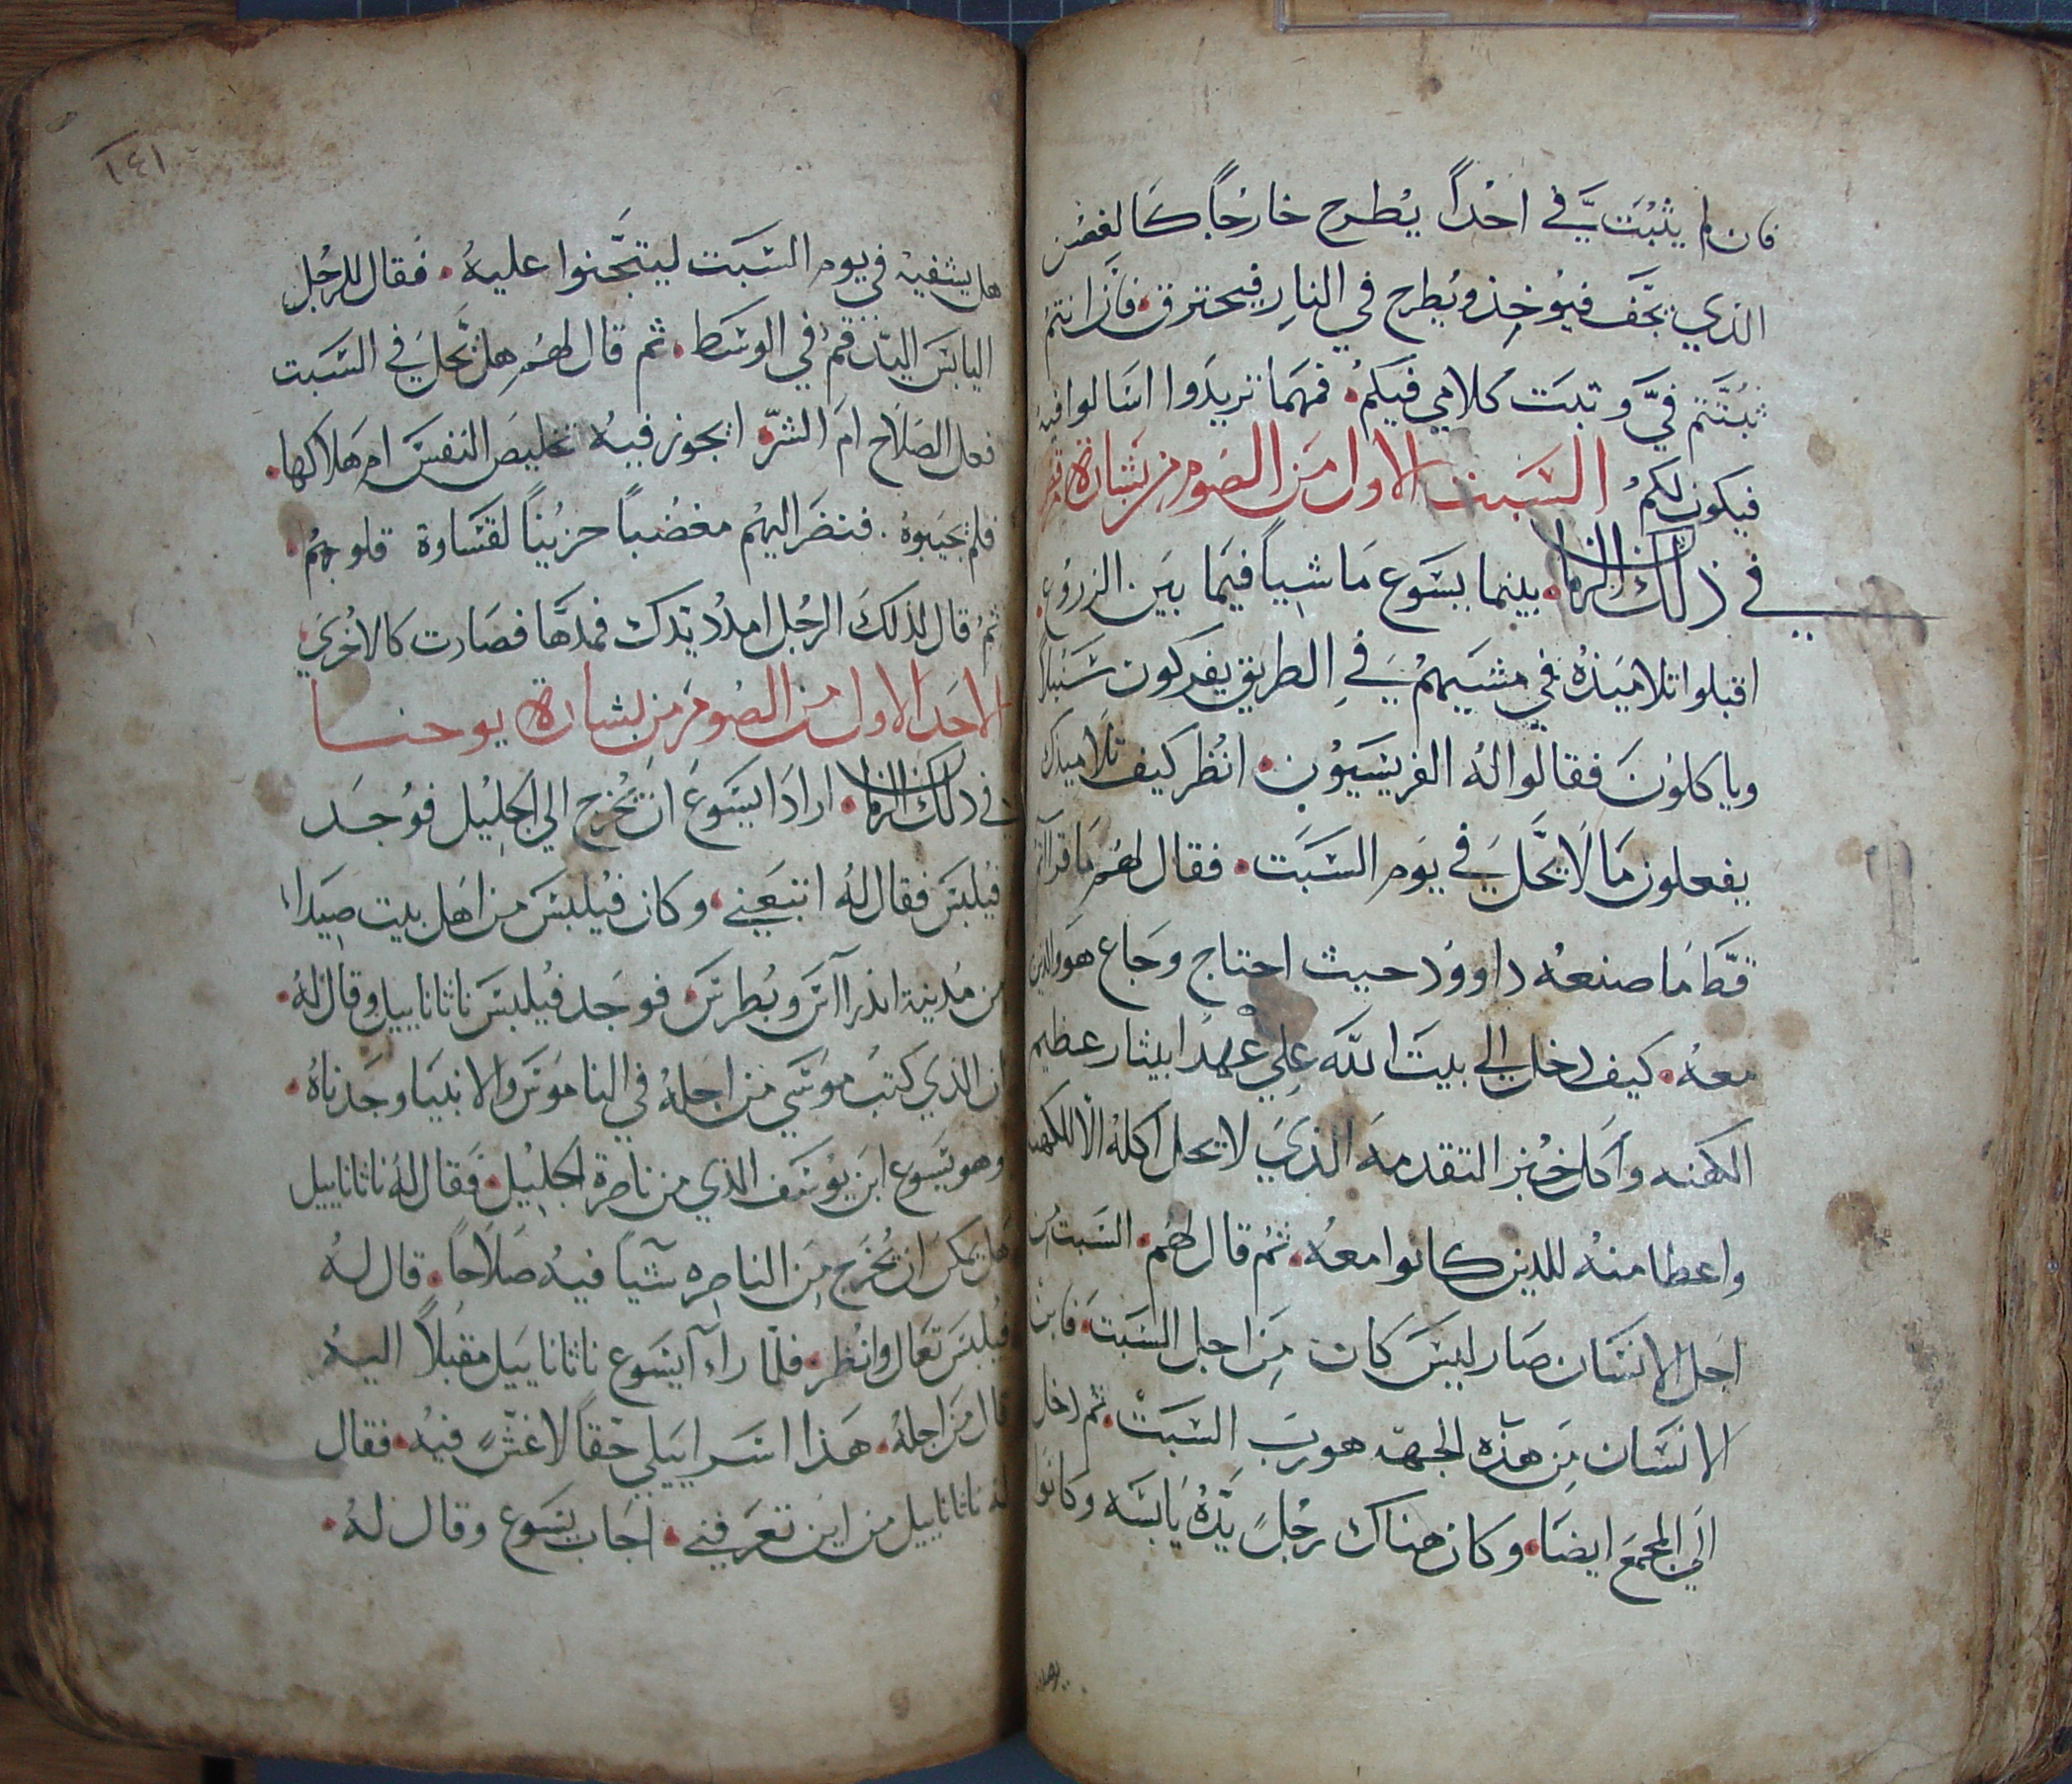 فان لم يثبت فيَّ احداً يُطرح خارجاً كالغصن
الذي يجف فيوخذ ويطرح في النار فيحترق فان انتم
ثبتتم فيَّ وتبت كلامي فيكم فمهما تريدوا اسالوا فيه
فيكون لكم السبت الاول من الصوم من بشارة مرقس
في ذلك الزمان بينما يسوع ماشياً فيما بين الزروع
اقبلوا تلاميذه في مشيهم في الطريق يفركون سنبلاً
وياكلون فقالوا له الفريسيون انظر كيف تلاميذك
يفعلون ما لا يحل في يوم السبت فقال لهم ما قراتم
قط ما صنعه داوود حيث احتاج وجاع هو والذين
معه كيف دخل الي بيت الله علي عهد ابيثار عظيم
الكهنه واكل خبز التقدمه الذي لا يحل اكله الا للكهنه
واعطا منه للذين كانوا معه ثم قال لهم السبت من
اجل الانسان صار ليس كان من اجل السبت فابن
الانسان من هذه الجهه هو رب السبت ثم دخل
الي المجمع ايضا وكان هناك رجلٍ يده يابسه وكانوا
١٤١
هل يشفيه في يوم السبت ليتجنوا عليه فقال للرجل
اليابس اليد قم في الوسط ثم قال لهم هل يحل في السبت
فعل الصلاح ام الشر ايجوز فيه تخليص النفس ام هلاكها
فلم يجيبوه فنضر اليهم مغضباً حزيناً لقساوة قلوبهم
ثم قال لذلك الرجل امدد يدك فمدها فصارت كالاخري
الاحد الاول من الصوم من بشارة يوحنا
في ذلك الزمان اراد ايسوع ان يخرج الي الجليل فوجد
فيلبس فقال له اتبعني وكان فيلبس من اهل بيت صيدا
من مدينة اندراآس وبطرس فوجد فيلبس ناثاناييل وقال له
ان الذي كتب موسي من اجله في الناموس والانبيا وجدناه
وهو يسوع ابن يوسف الذي من ناصرة الجليل فقال له ناثاناييل
هل يمكن ان يخرج من الناصره شياً فيه صلاحاً قال له
فيلبس تعال وانظر فلما راء آيسوع ناثاناييل مقبلاً اليه
قال من اجله هذا اسراييلي حقاً لا غش فيه فقال
له ناثاناييل من اين تعرفني اجاب يسوع وقال له